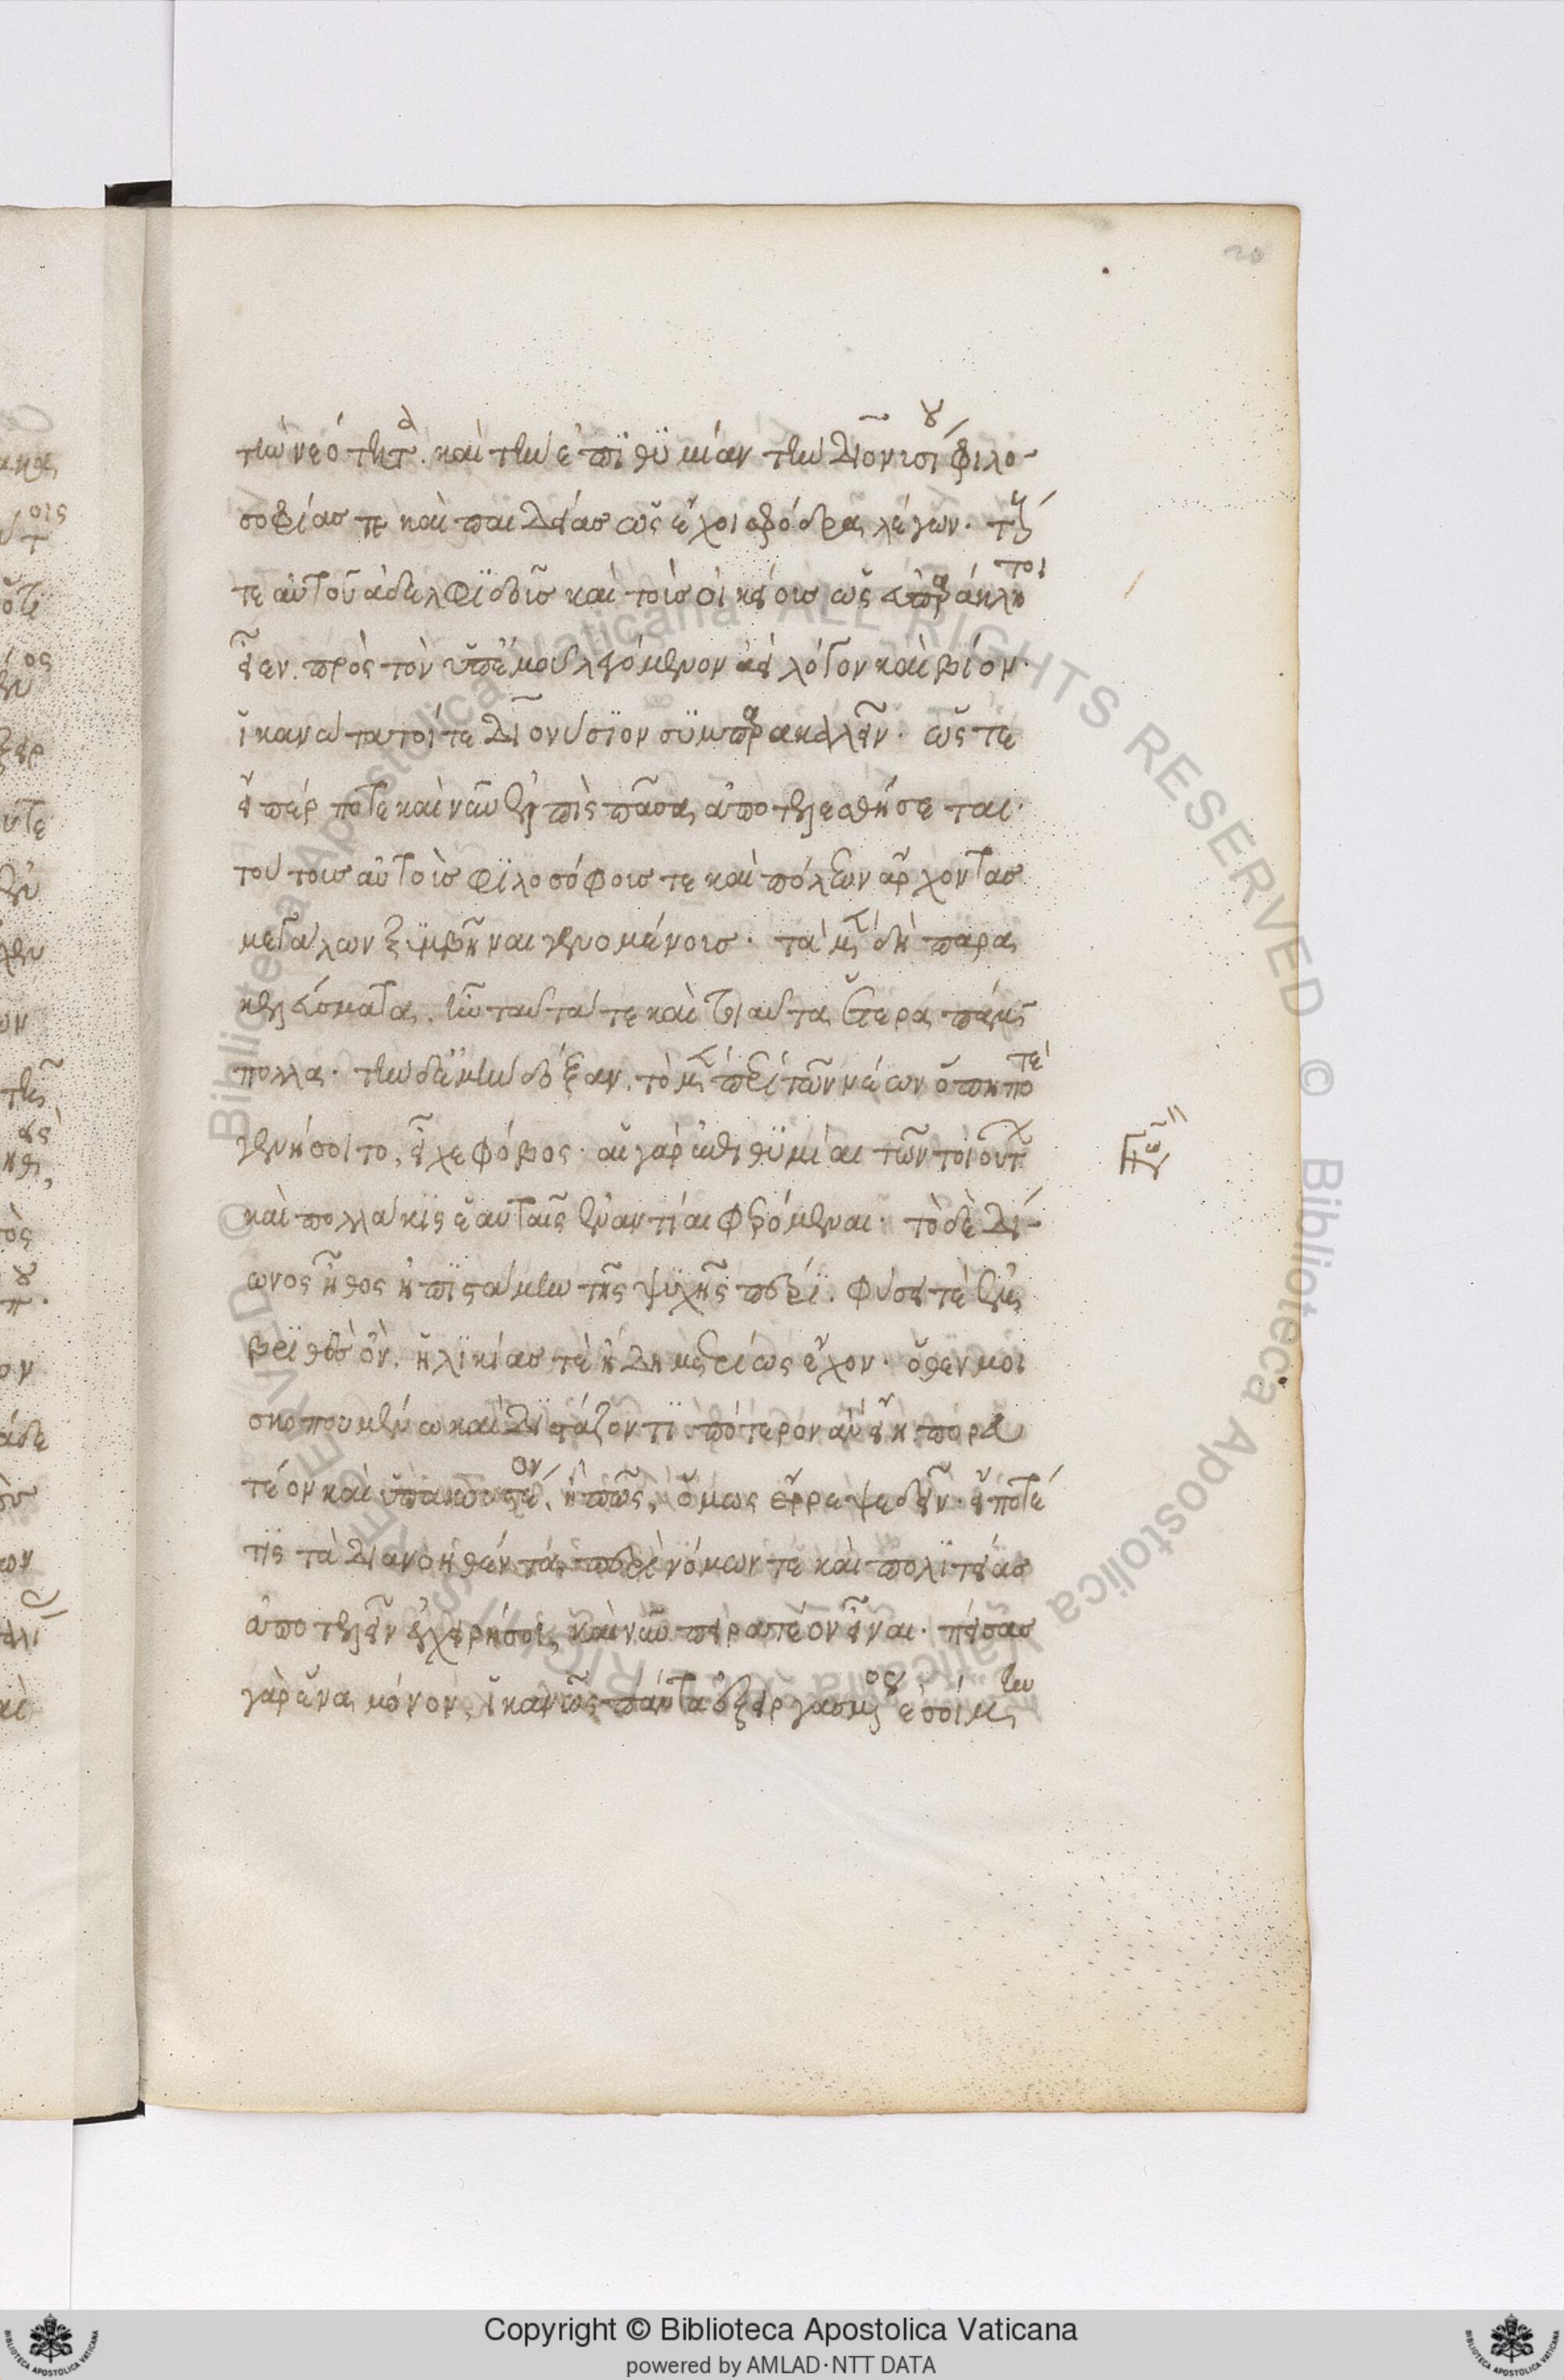 20
τὴν νεότητα. καὶ τὴν ἐπϊθϋμίαν τὴν Διονυσίου φιλο-
σοφίας τε καὶ παιδείας ὡς ἔχοι σφόδρα λέγων. τούς
τε αὐτοῦ ἀδελφϊδοῦς καὶ τοὺς οἰκείους ὡς εὐπαράκλητοι
εἶεν. πρὸς τὸν ὑπ' ἐμοῦ λεγόμενον ἀεὶ λόγον καὶ βίον.
ἱκανώτατοί τε Διονύσϊον συμπαρακαλεῖν. ὥς τε
εἴπέρ ποτε καὶ νῦν ἐλπὶς πᾶσα ἀποτελεσθήσεται.
τοὺ τοὺς αὐτοὺς φϊλοσόφους τε καὶ πόλεων ἄρχοντας
μεγάλων ξϋμβῆναι γενομένους. τὰ μὲν δὴ παρα
κελεύσματα. ἦν ταῦτά τε καὶ τοιαῦτα ἕτερα πάμ
πολλα. τὴν δ' ἐμὴν δόξαν. τὸ μὲν περὶ τῶν νέων ὅπη ποτὲ
γενήσοιτο, εἶχε φόβος. αἱ γὰρ ἐπιθϋμίαι τῶν τοιούτων
καὶ πολλάκϊς ἑαυταῖς ἐναντίαι φερόμεναι. τὸ δὲ Δί-
ωνος ἦθος ἠπϊστάμην τῆς ψυχῆς περϊ. φύσει τὲ ἐμ
βρϊθὲς ὂν. ἡλϊκίας τὲ ἤδη μετρίως ἔχον. ὅθεν μοι
σκοπουμένω καὶ διστάζοντϊ. πότερον εἴη πορευ
τέον καὶ ὑπακουστέον, ἢ πῶς, ὅμως ἔρρεψε δεῖν. εἴ ποτέ
τϊς τὰ διανοηθέντα περὶ νόμων τε καὶ πολϊτείας
ἀποτελεῖν ἐγχειρήσοι, καὶ νῦν πειρατέον εἶναι. πείσας
γὰρ ἕνα μόνον, ἱκανῶς πάντα ἐξειργασμένος ἐσοίμην
Copyright © Biblioteca Apostolica Vaticana
powered by AMLAD·NTT DATA